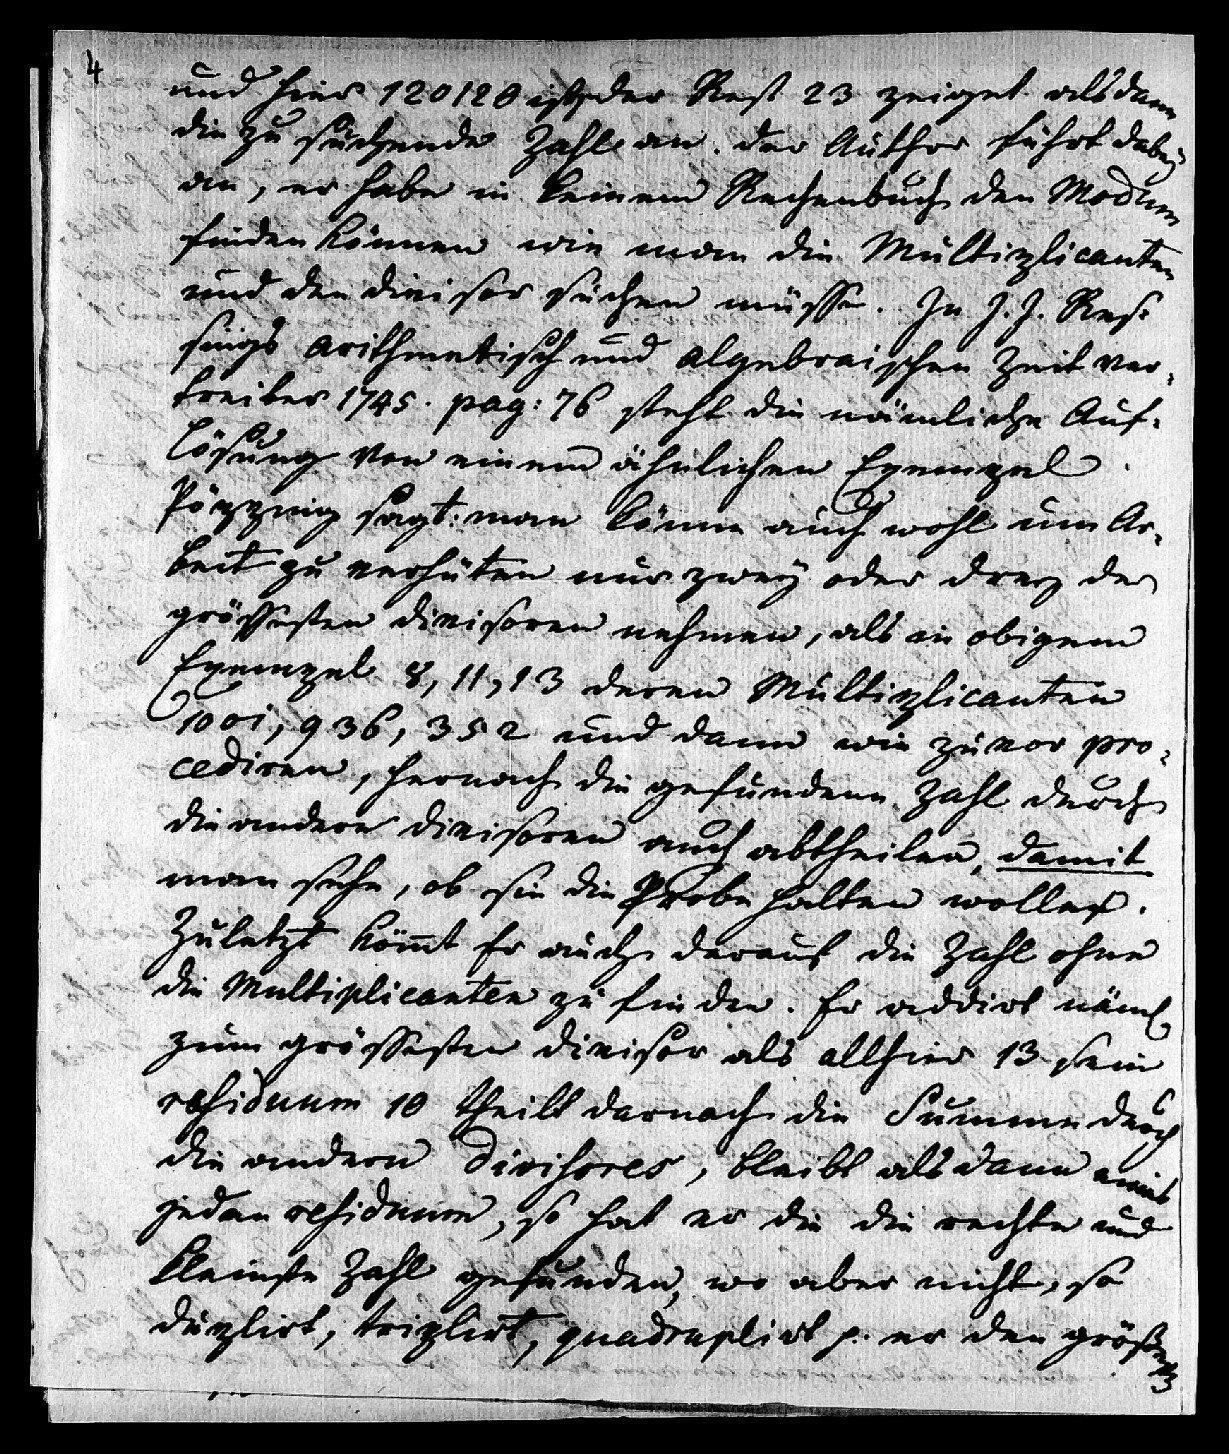 4
und hier 120120 ist, der Rest 23 zeiget alsdann
die zu suchende Zahl an. der Author führt dabey
an, er habe in keinem Rechenbuch den Modum
finden können wie man die Multiplicanten
und den divisor suchen müsse. In J. J.
arithmetisch und algebraischen Zeit ver-
treiber 1745. pag: 76 steht die nämliche Auf-
lösung von einem ähnlichen Exempel.
sagt: man könne auch wohl um Ar-
beit zu verhüten nur zwey oder drey der
grössesten divisoren nehmen, als in obigem
Exempel 8, 11, 13 deren Multiplicanten
1001, 936, 352 und dann wie zuvor pro-
cediren, hernach die gefundene Zahl durch
die andere divisoren auch abtheilen, damit
man sehe, ob sie die Probe halten wollen.
Zuletzt kömt Er auch darauf die Zahl ohne
die Multiplicanten zu finden. Er addirt näml
zum grössesten divisor als allhier 13 sein
residuum 10 theilt darnach die Summe durch
die andern Divisores, bleibt alsdann
jedan residuum, so hat er die die rechte und
kleinste Zahl gefunden, wo aber nicht, so
duplirt, triplirt, quadruplirt p. er den größten